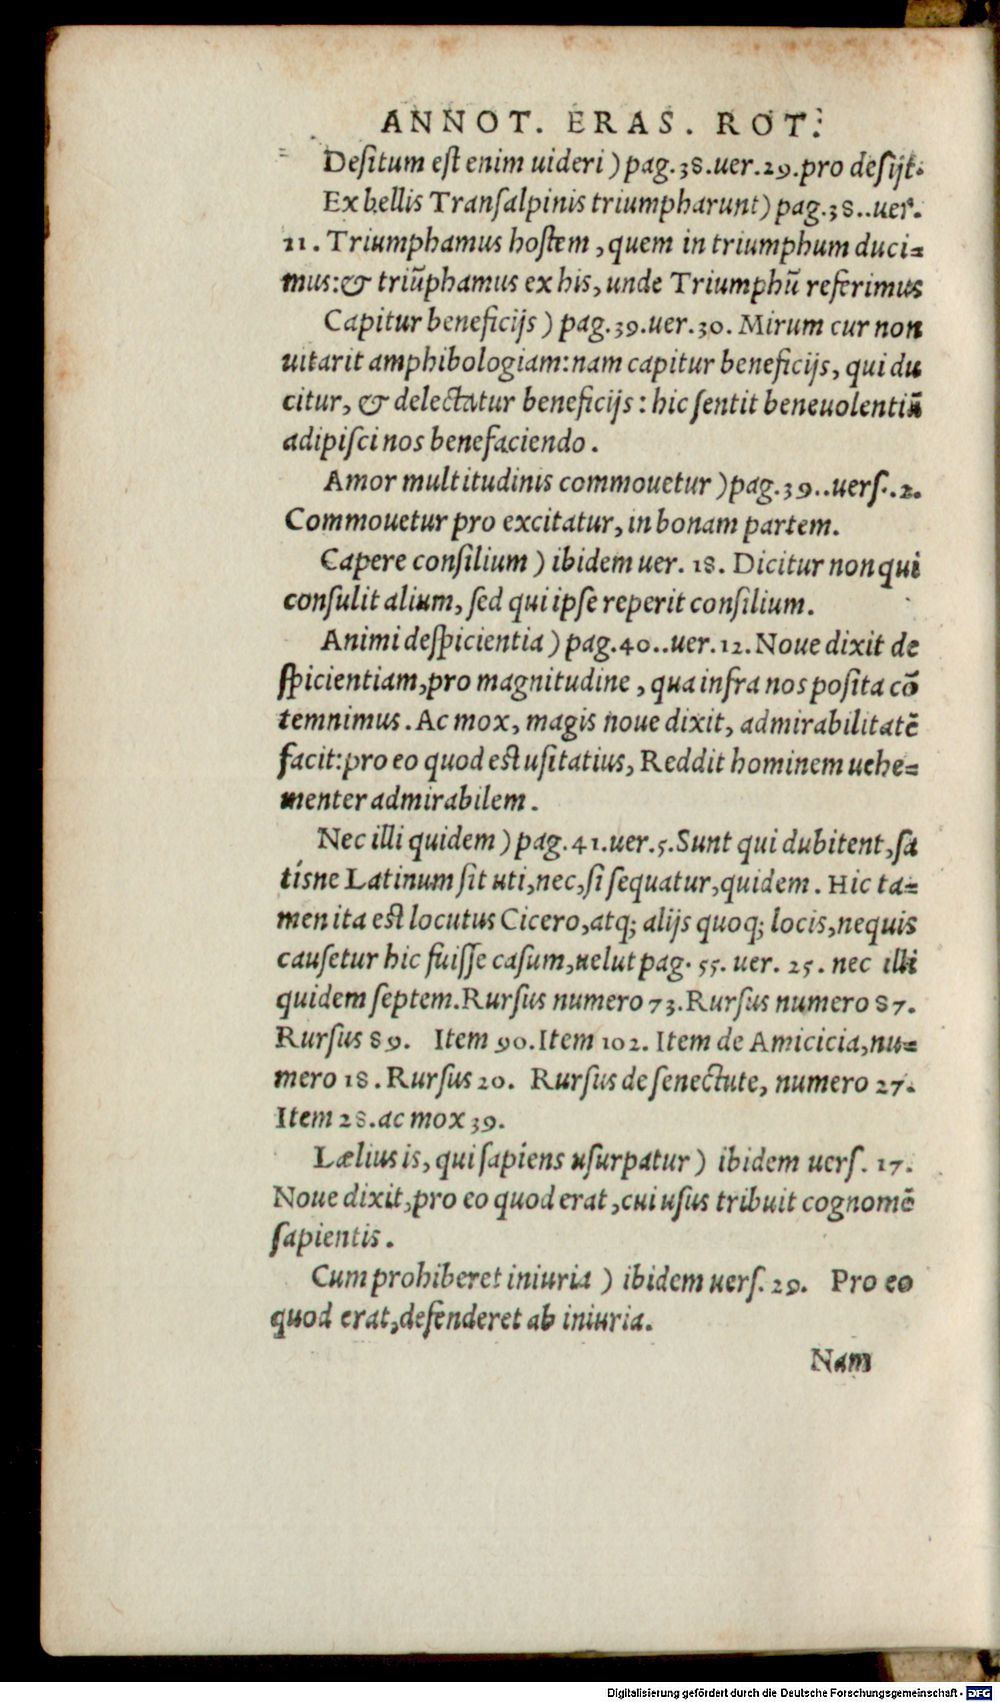 ANNOT. ERAS. ROT.
Deſitum eſt enim uideri ) pag. 38. uer. 29. pro deſijt.
Ex bellis Tranſalpinis triumpharunt) pag. 38.. uer.
21. Triumphamus hoſtem, quem in triumphum duci=
mus: & triũphamus ex his, unde Triumphũ referimus
Capitur beneficijs ) pag. 39. uer. 30. Mirum cur non
uitarit amphibologiam: nam capitur beneficijs, qui du
citur, & delectatur beneficijs : hic ſentit beneuolentiã
adipiſci nos benefaciendo.
Amor multitudinis commouetur ) pag. 39.. uerſ.. 2.
Commouetur pro excitatur, in bonam partem.
Capere conſilium ) ibidem uer. 18. Dicitur non qui
conſulit alium, ſed qui ipſe reperit conſilium.
Animi deſpicientia ) pag. 40.. uer. 12. Noue dixit de
ſpicientiam, pro magnitudine, qua infra nos poſita cõ
temnimus. Ac mox, magis noue dixit, admirabilitatẽ
facit: pro eo quod eſt uſitatius, Reddit hominem uehe=
menter admirabilem.
Nec illi quidem ) pag. 41. uer. 5. Sunt qui dubitent, ſa
tíſne Latinum ſit uti, nec, ſi ſequatur, quidem. Hic ta=
men ita eſt locutus Cicero, atq; alijs quoq; locis, nequis
cauſetur hic fuiſſe caſum, uelut pag. 55. uer. 25. nec illi
quidem ſeptem. Rurſus numero 73. Rurſus numero 87.
Rurſus 89. Item 90. Item 102. Item de Amicicia, nu=
mero 18. Rurſus 20. Rurſus de ſenectute, numero 27.
Item 28. ac mox 39.
Lælius is, qui ſapiens uſurpatur ) ibidem uerſ. 17.
Noue dixit, pro eo quod erat, cui uſus tribuit cognomẽ
ſapientis.
Cum prohiberet iniuria ) ibidem uerſ. 29. Pro eo
quod erat, defenderet ab iniuria.
Nam
Digitalisierung gefördert durch die Deutsche Forschungsgemeinschaft - DFG